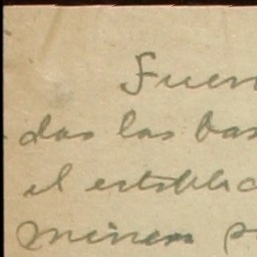 Fuer
das las bas
el establec
minen p